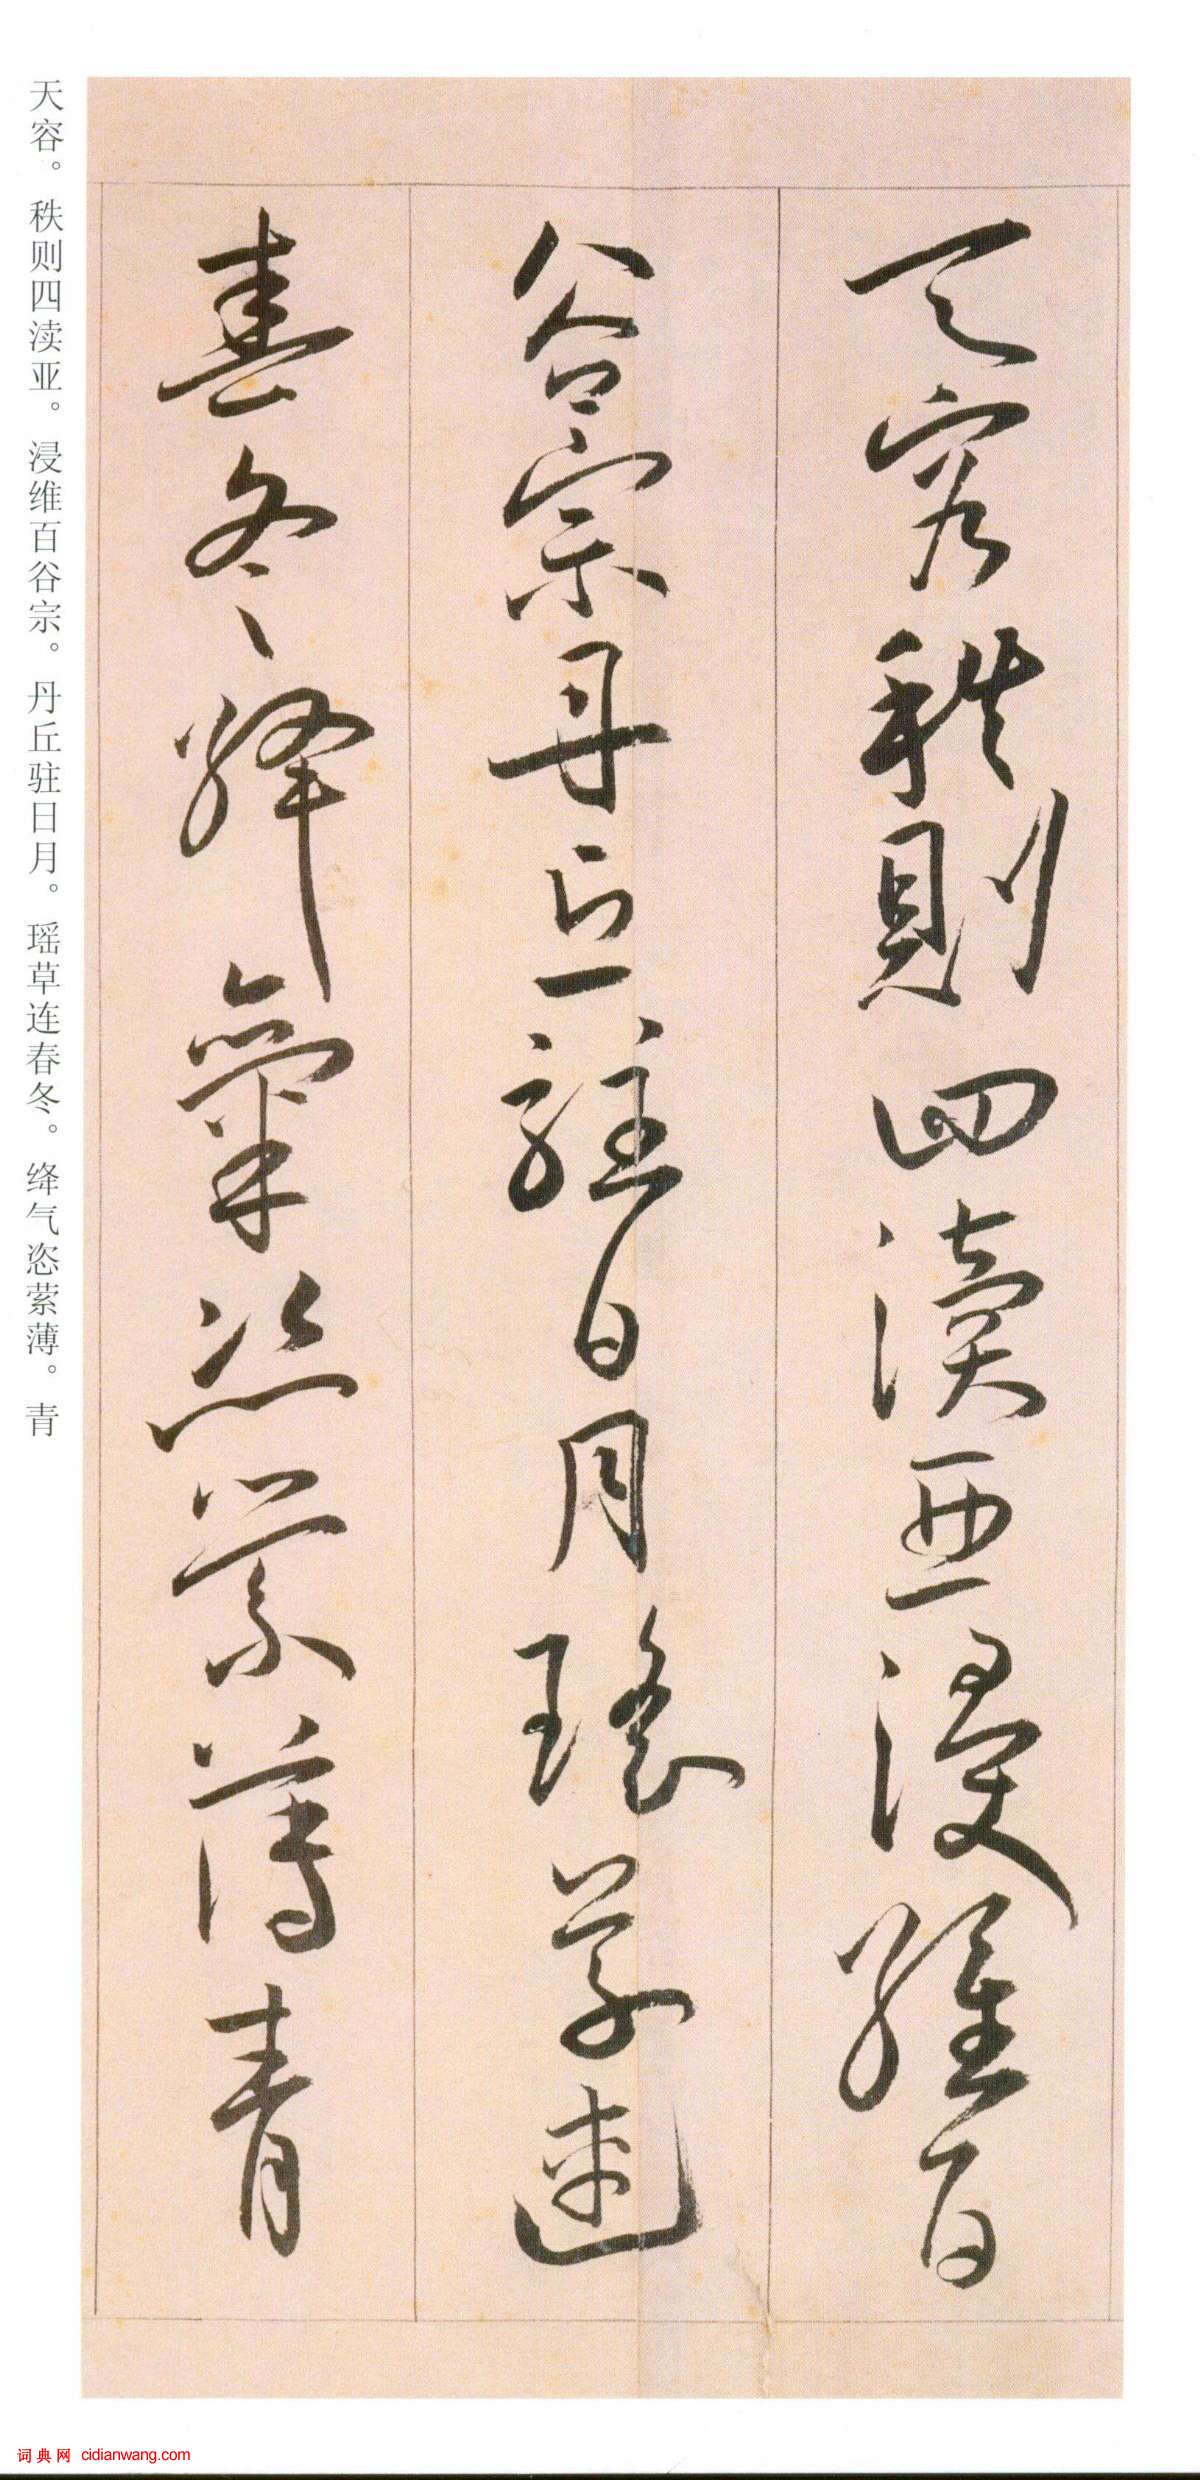 天容秩則四瀆亞浸維百
谷宗丹丘駐日月瑤草連
春冬絳氣恣縈薄青
天容。秩则四渎亚。浸维百谷宗。丹丘驻日月。瑶草连春冬。绛气恣萦薄。青
词典网 cidianwang.com